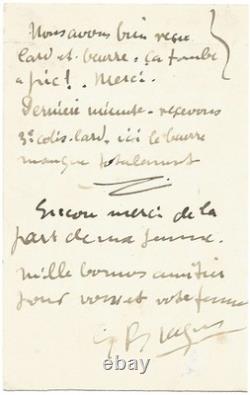 Nous avons bien reçu
lard et beurre. ça tombe
a pic! Merci.
Dernière minute - recevons
3e colis lard, ici le beurre
manque totalement
Encore merci de la
part de ma femme.
mille bonnes amitiés
pour vous et votre femme
© 111bernard.fr